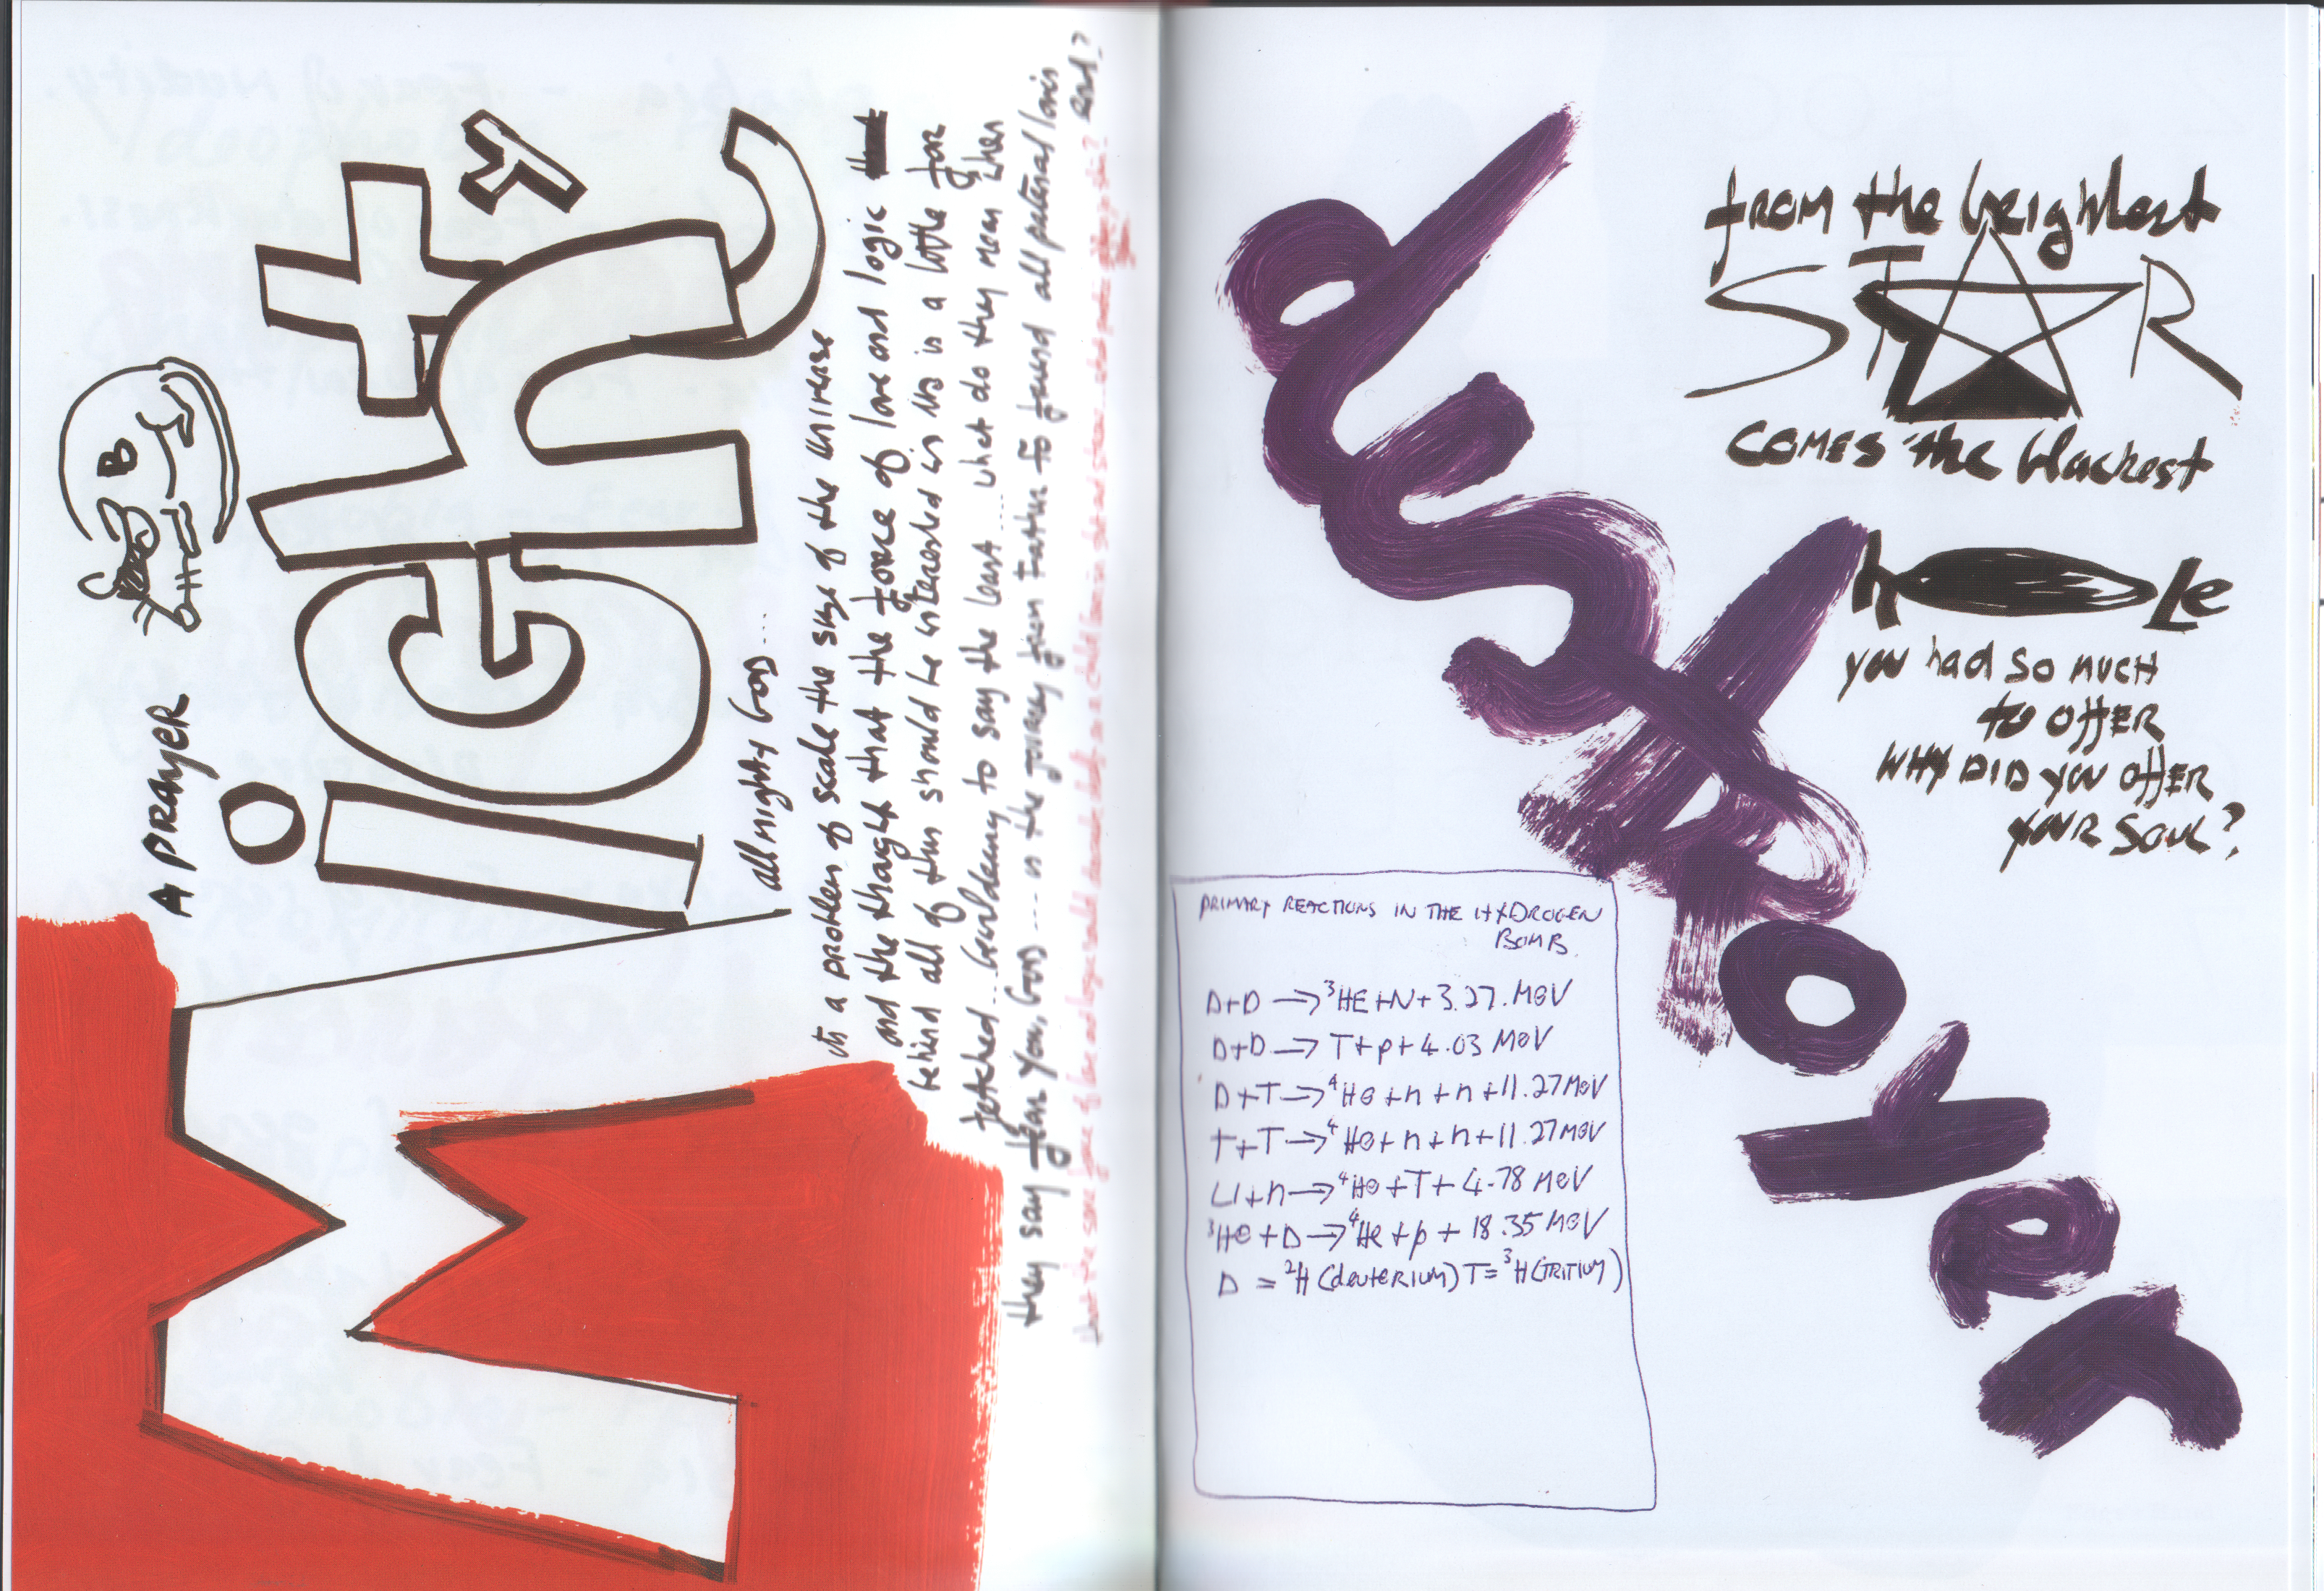 A PRAYER
Mighty
all mighty God....
its a problem of scale the size of the universe
and the thought that the force of love and logic
behind all of this should be interested in us is a little far
fetched... bewildering to say the least.... what do they mean when
they say fear you, GOD.... is the journey from Father to friend all paternal lovers
end?
B
destroyer
from the brightest
STAR
comes the blackest
hole
you had so much
to offer
WHY DID you offer
your soul?
PRIMARY REACTIONS IN THE HYDROGEN
BOMB.
D+D → ³HE+N+3.27.MeV
D+D → T+p+4.03 MeV
D+T → ⁴He+n+n+11.27MeV
T+T → ⁴He+n+n+11.27MeV
Li+n → ⁴He+T+4.78 MeV
³He+D → ⁴He+p+18.35MeV
D = ²H (deuterium) T= ³H (TRITIUM)